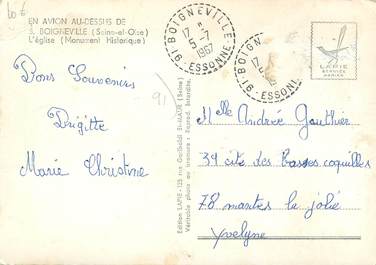 60 €
EN AVION AU-DESSUS DE
3. BOIGNEVILLE (Seine-et-Oise)
L'église (Monument Historique)
BOIGNEVILLE
17 H
5-7
1967
91-ESSONNE
BOIGNEVILLE
91-ESSONNE
LAPIE
SERVICE
AERIEN
91
Bons Souvenirs
Brigitte
Marie Christine
Edition LAPIE - 125 rue Garibaldi St-MAUR (Seine)
Véritable photo au bromure - Reprod. Interdite.
Mlle Andrée Gauthier
39 cité des Basses coquilles
78 mantes la jolie
Yvelyne